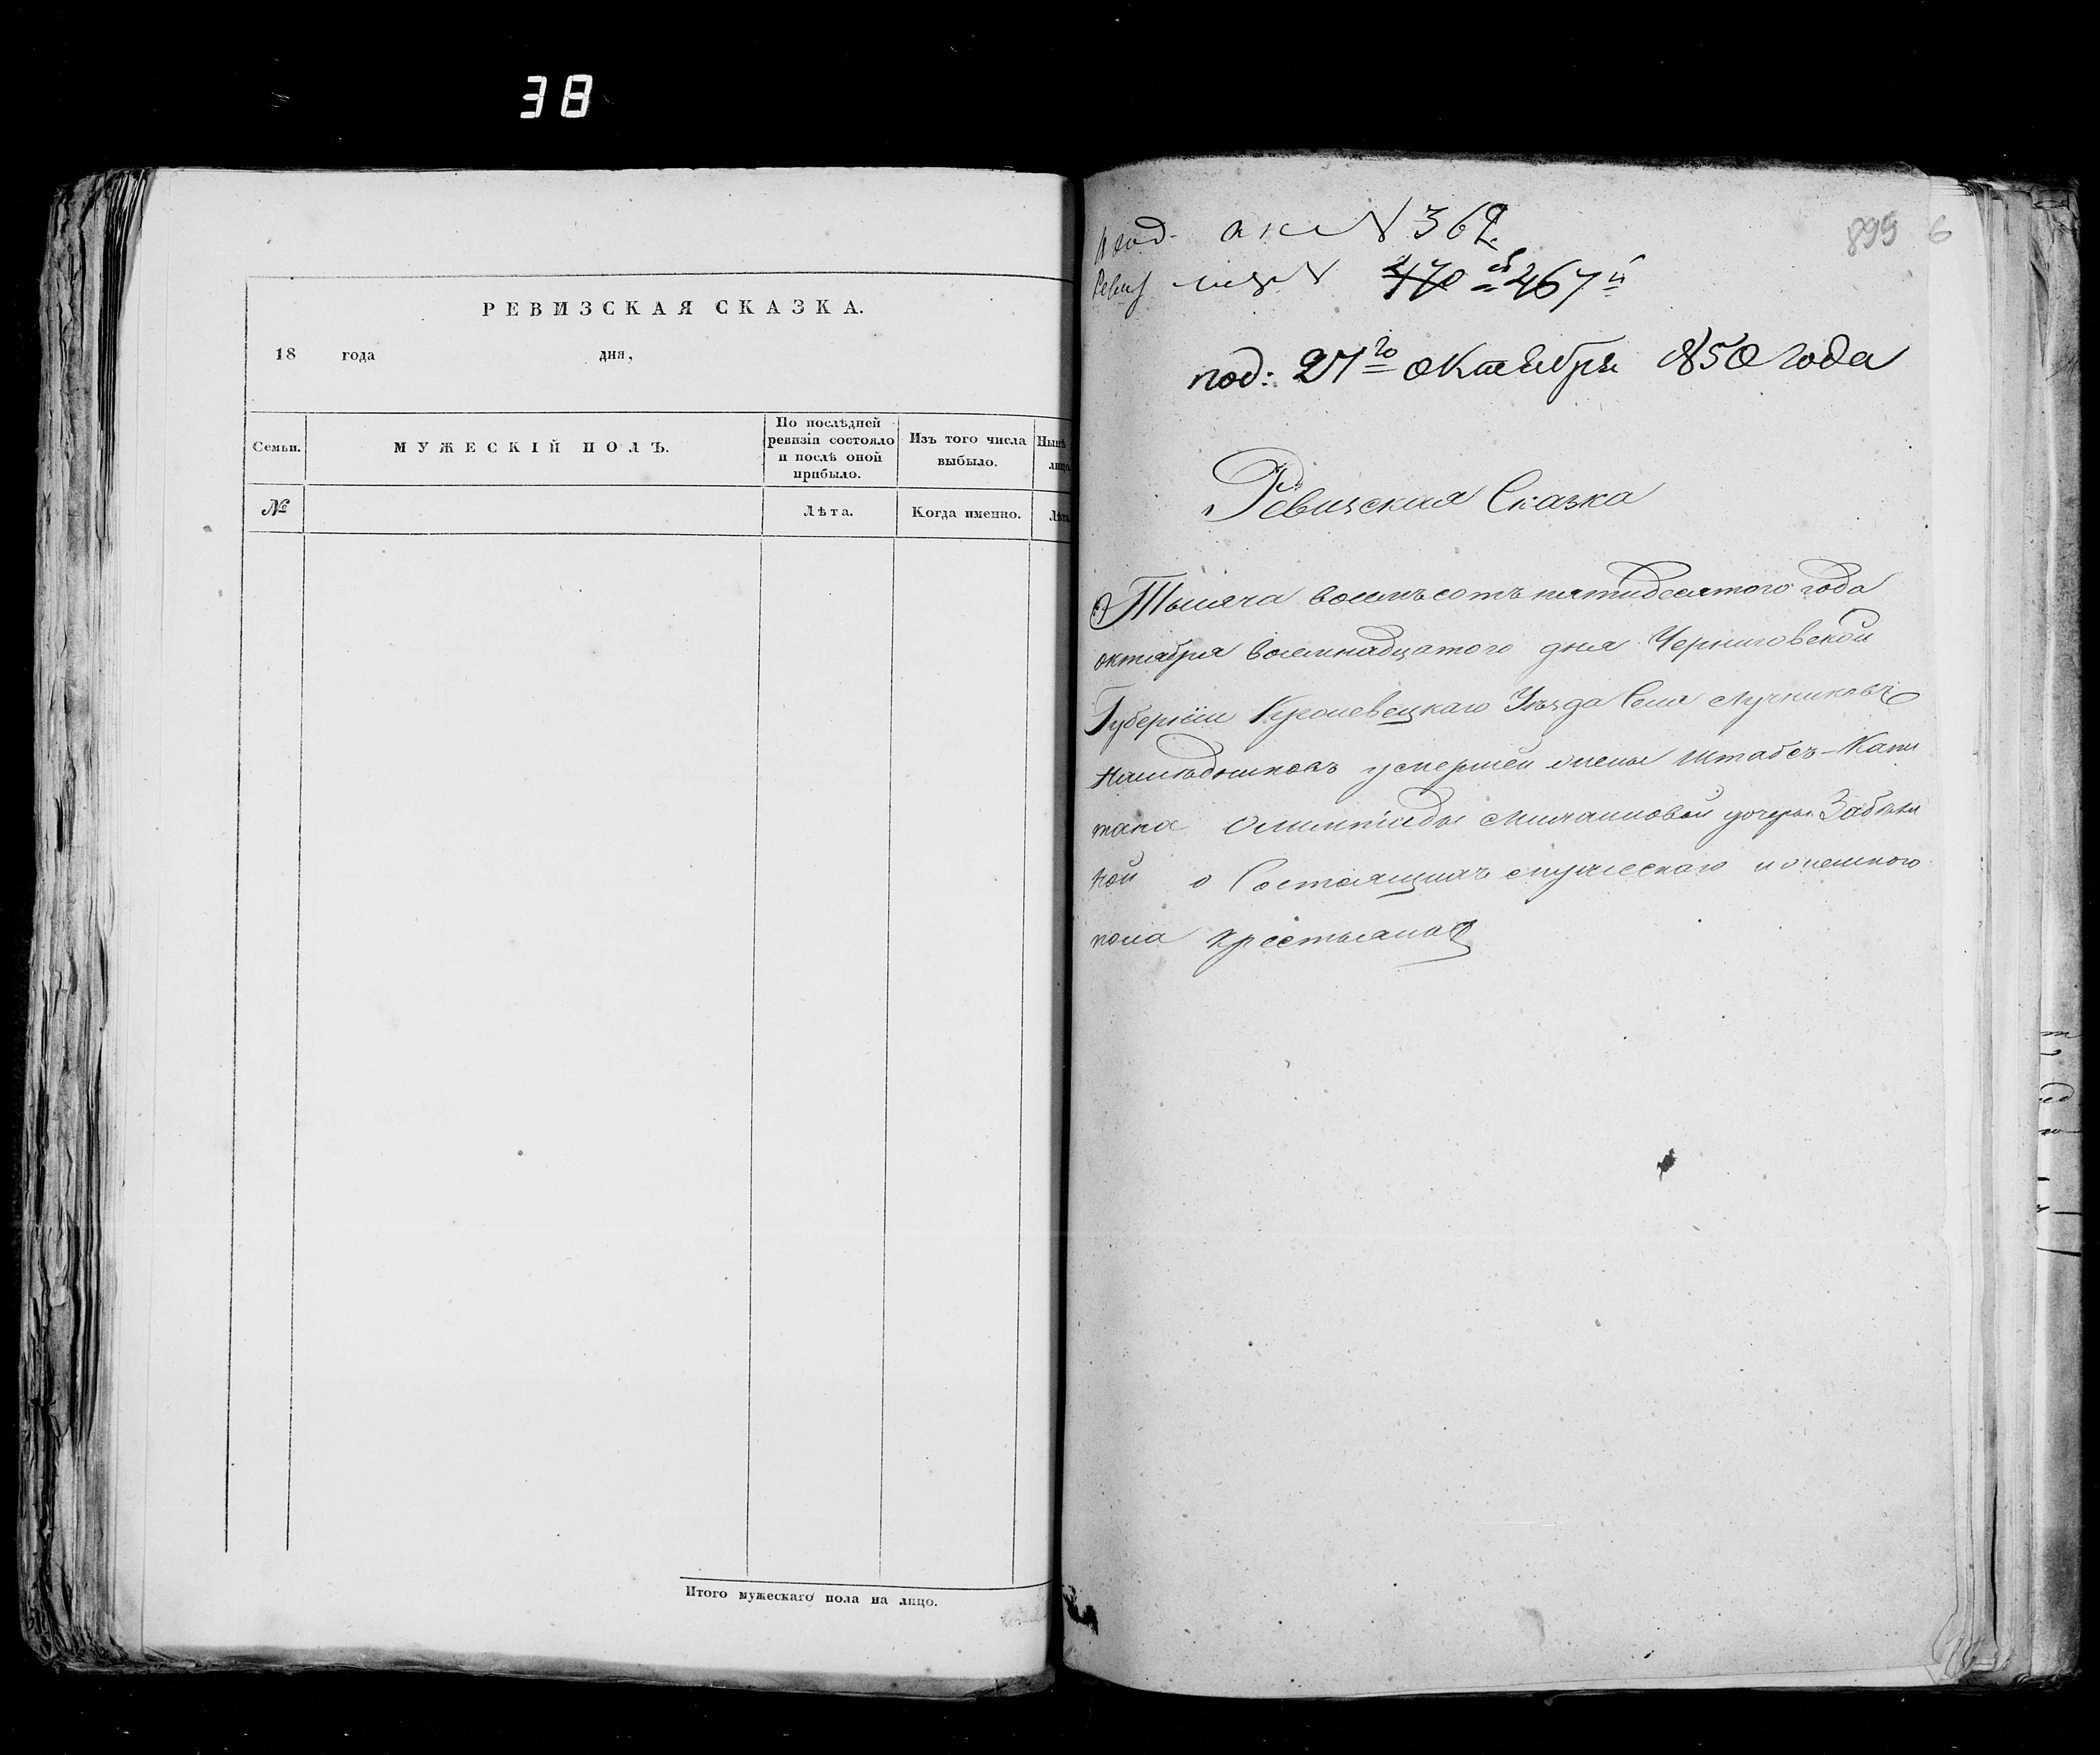 38
РЕВИЗСКАЯ СКАЗКА.
18 года дня,
Семьи.
МУЖЕСКІЙ ПОЛЪ.
По послѣдней
ревизіи состояло
и послѣ оной
прибыло.
Изъ того числа
выбыло.
Нынѣ
лицо
№
Лѣта.
Когда именно.
Лѣта
Итого мужескаго пола на лицо.
899 6
№ 362
470 467
под: 27го октября 1850 года
Ревизская Сказка
Тысяча восемьсотъ пятидесятого года
октября восемнадцатого дня Черниговской
Губерніи Кролевецкаго Уѣзда Села Лучниковъ
Наслѣдниковъ умершей жены Штабсъ-Капи
тана Олимпіады Михаиловой дочери Забѣли
ной о Состоящихъ мужескаго и женского
пола крестьянахъ